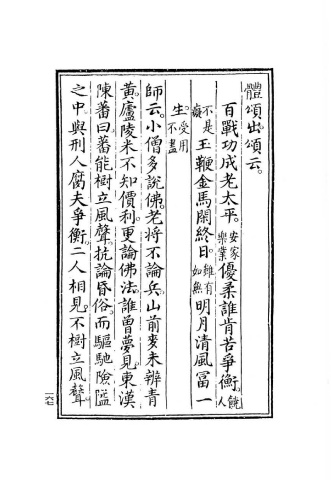 體頌出頌云。
百戰功成老太平。安家樂業優柔誰肯苦爭衡。饒人
不是癡玉鞭金馬閑終日。雖有如無明月清風富一
生。受用不盡
師云。小僧多說佛。老將不論兵。山前麥未辨青
黃。廬陵米不知價利。更論佛法。誰曾夢見。東漢
陳蕃曰蕃能樹立風聲。抗論昏俗。而驅馳險隘
之中。與刑人腐夫爭衡。二人相見。不樹立風聲
一六七